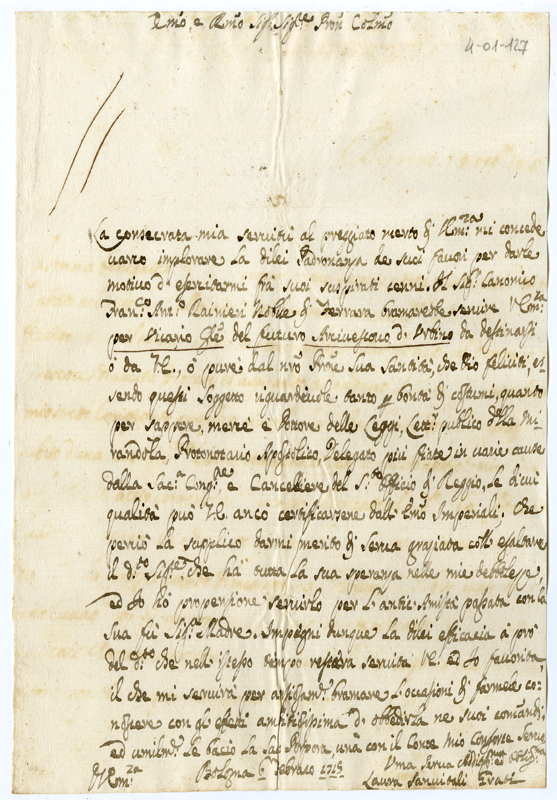 Emo, e Rmo Sigr Sigre Pron Colmo
4-01-127
La consecrata mia servitù al preggiato merto di V. Emza mi concede
varco implorare la dilei Padronanza de suoi favori per darle
motivo d'esercitarmi frà suoi suspirati cenni. Il Sigr Canonico
Franco Anto Rainieri Nobile di Ferrara bramarebbe servire V. Emza
per Vicario Gle del futuro Arcivescovo d'Urbino da destinarsi
ò da V.E., ò pure dal nro Prone Sua Santità, che Dio feliciti, es
sendo questi Soggetto riguardevole tanto p bontà di costumi, quanto
per sappere, mentre è Dottore delle Leggi, Lettr publico della Mi
randola, Protonotario Apostolico, Delegato più fiate in varie cause
dalla Sacr Congne, e Cancelliere del S. Officio di Reggio, le di cui
qualità può V.E. anco certificarsene dall' Emo Imperiali. Che
perciò la supplico darmi merito di Serva graziata coll' esaltare
il dto Sigre che hà tutta la sua speranza nelle mie debolezze,
ed Io hò propensione servirlo per l'antic' Amistà passata con la
Sua fù Sigra Madre. Impegni dunque la dilei efficacia à prò
del dto che nell' istesso tempo resterà servita V.E. ed Io favorita,
il che mi servirà per bramare l'occasioni di farmele co-
noscere con gli effetti ambitiosissima d'obbedirla ne suoi comandi,
ed umilmte le bacio la Sac Porpora, unà con il Conte mio Consorte Servo
D V. Emza
Bologna 6 Febraro 1715
Uma Serva
Laura Sanvitali Grati